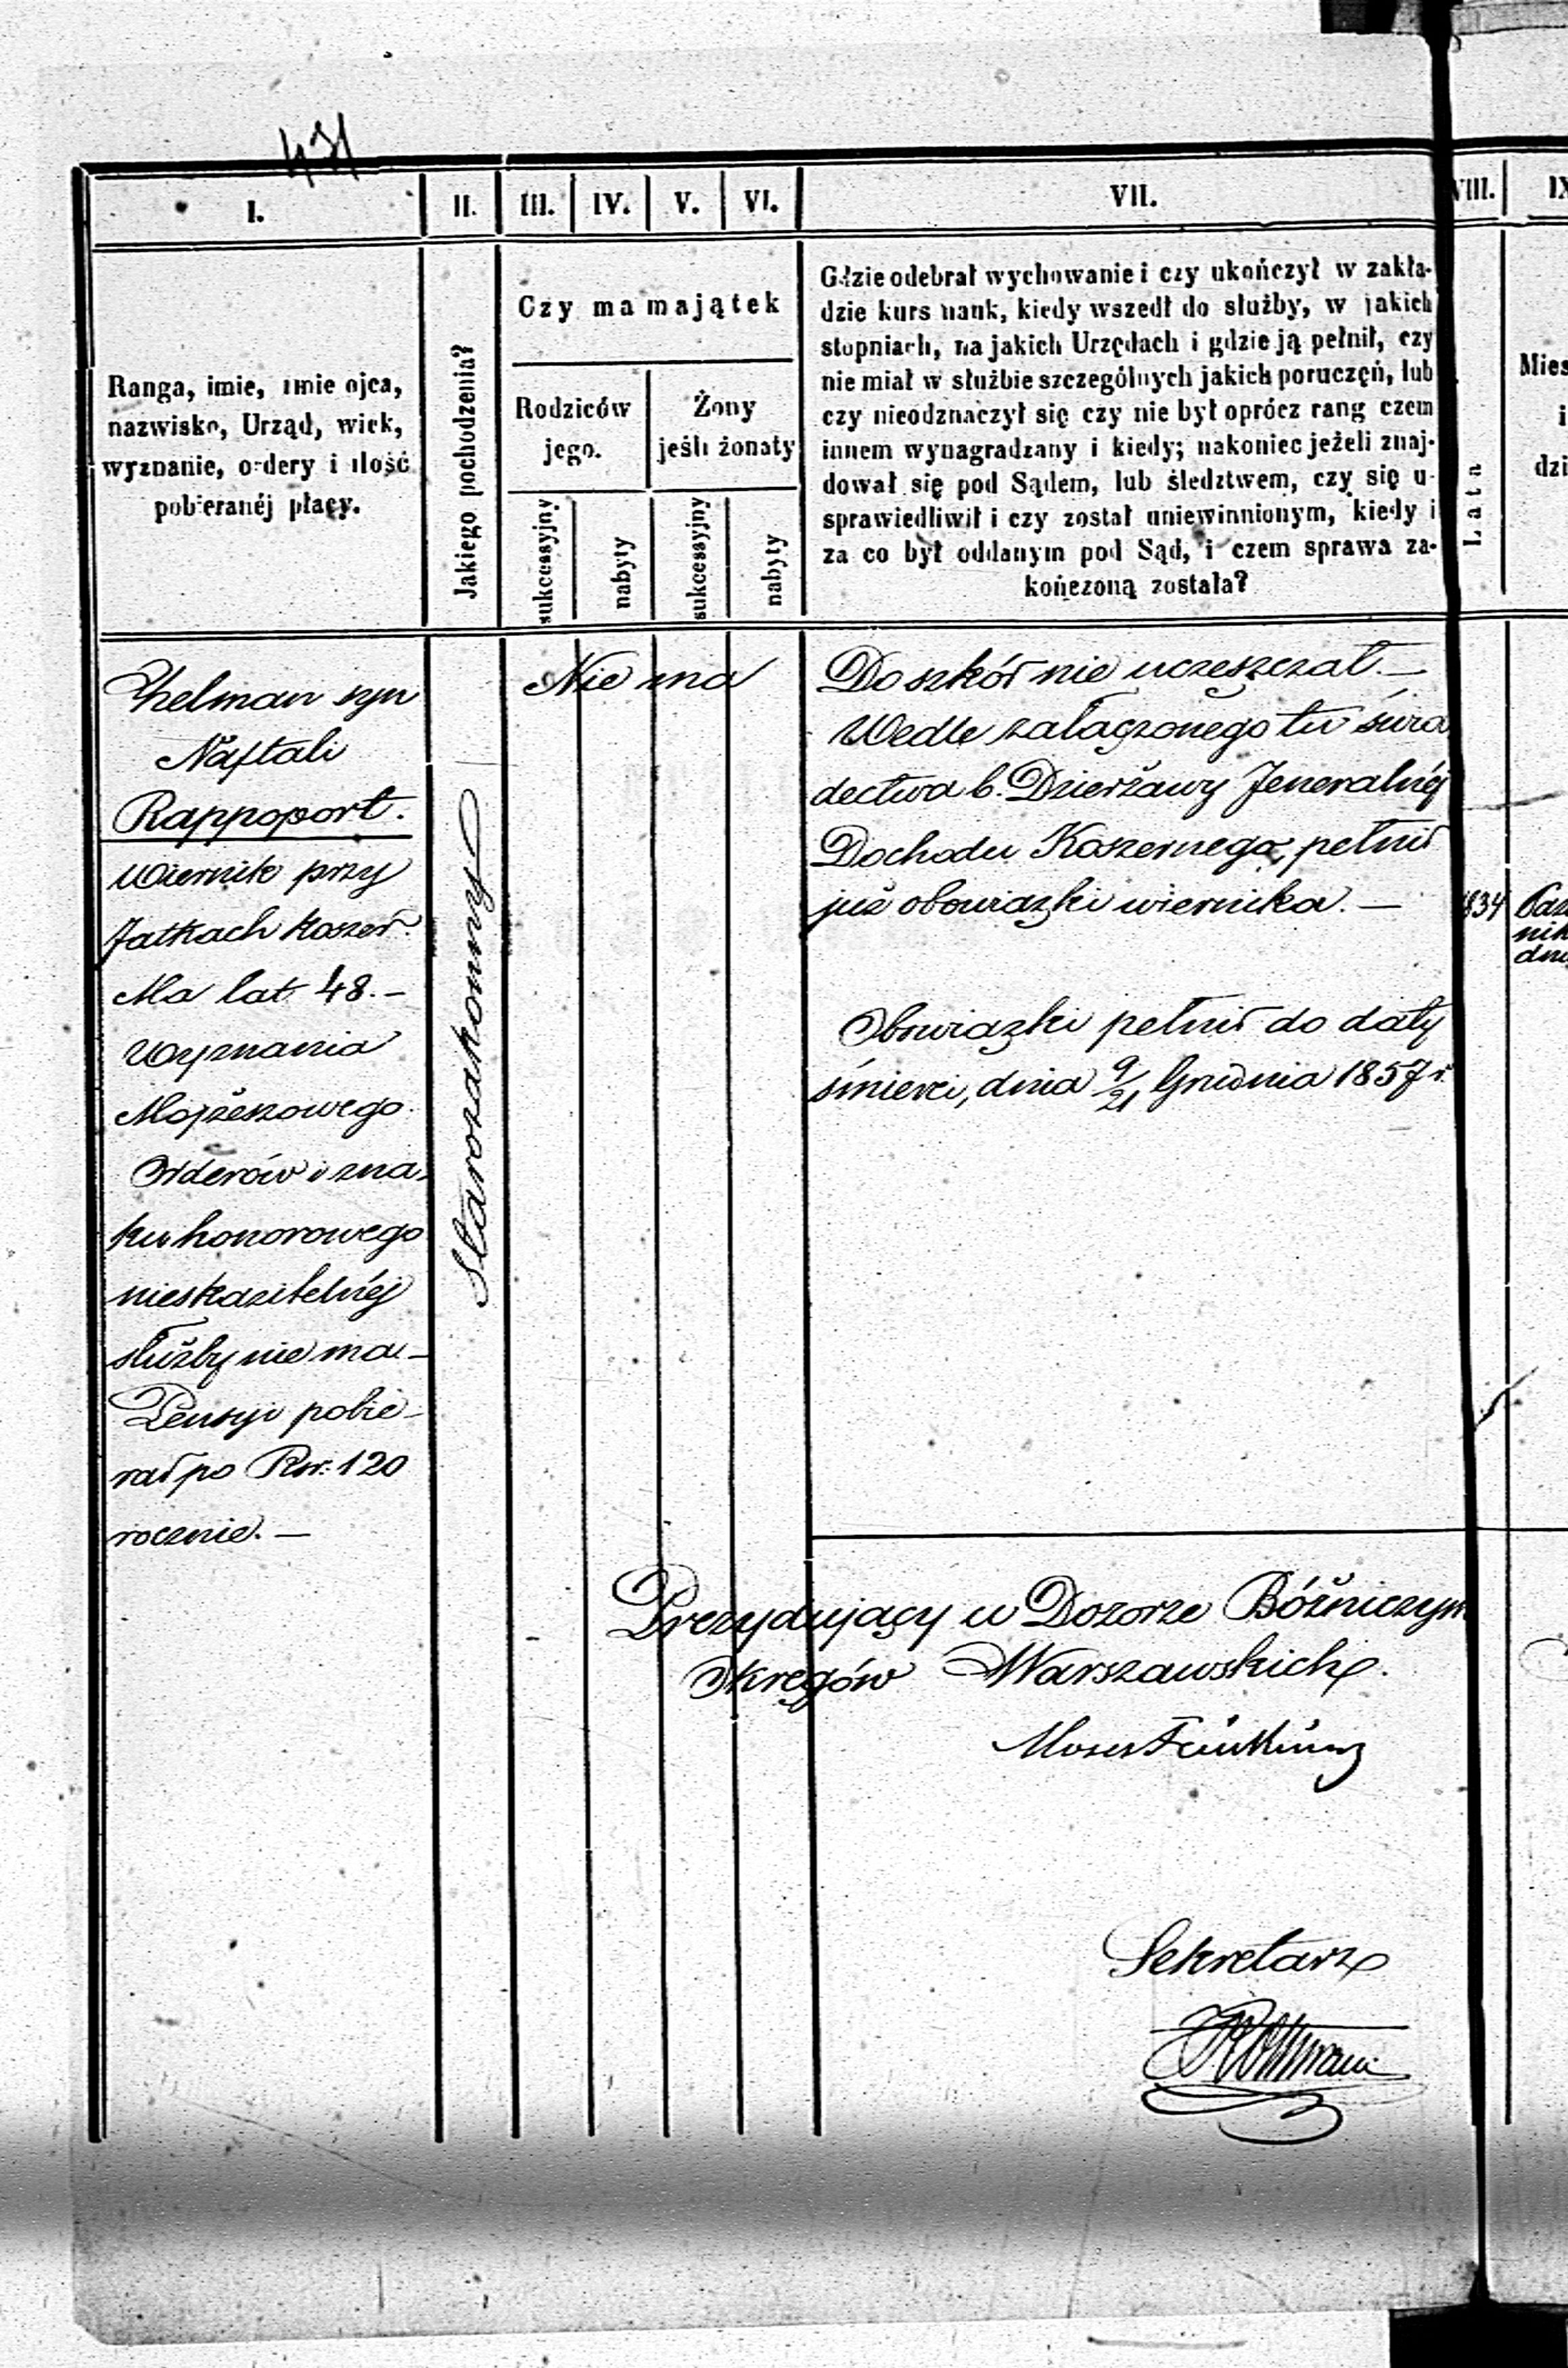 431
I.
II.
III.
IV.
V.
VI.
VII.
VIII.
IX
Ranga, imie, imie ojca,
nazwisko, Urząd, wiek,
wyznanie, ordery i ilość
pobieranéj płacy.
Jakiego pochodzenia?
Czy ma majątek
Rodziców
jego.
Żony
jeśli żonaty
sukcessyjny
nabyty
sukcessyjny
nabyty
Gdzie odebrał wychowanie i czy ukończył w zakła-
dzie kurs nauk, kiedy wszedł do służby, w jakich
stopniach, na jakich Urzędach i gdzie ją pełnił, czy
nie miał w służbie szczególnych jakich poruczęń, lub
czy nieodznaczył się czy nie był oprócz rang czem
innem wynagradzany i kiedy; nakoniec jeżeli znaj-
dował się pod Sądem, lub śledztwem, czy się u-
sprawiedliwił i czy został uniewinnionym, kiedy i
za co był oddanym pod Sąd, i czem sprawa za-
kończoną została?
Lata
Mies
i
dzi
Zhelman syn
Naftali
Rappoport.
Wiernik przy
Jatkach koszer.
Ma lat 48.–
Wyznania
Mojżeszowego.
Orderów i zna-
ku honorowego
nieskazitelnéj
służby nie ma –
Pensyi pobie-
rał po Rsr. 120
rocznie. –
Starozakonny
Nie ma
Do szkół nie uczeszczał. –
Wedle załączonego tu świa
dectwa b. Dzierżawy Jeneralnéj
Dochodu Koszernego, pełnił
już obowiązki wiernika. –
1834
Paz
nik
dni
Obowiązki pełnił do daty
śmierci, dnia 9/21 Grudnia 1857 r.
Prezydujący w Dozorze Bóżniczym
Okręgów Warszawskich.
Moses
Sekretarz